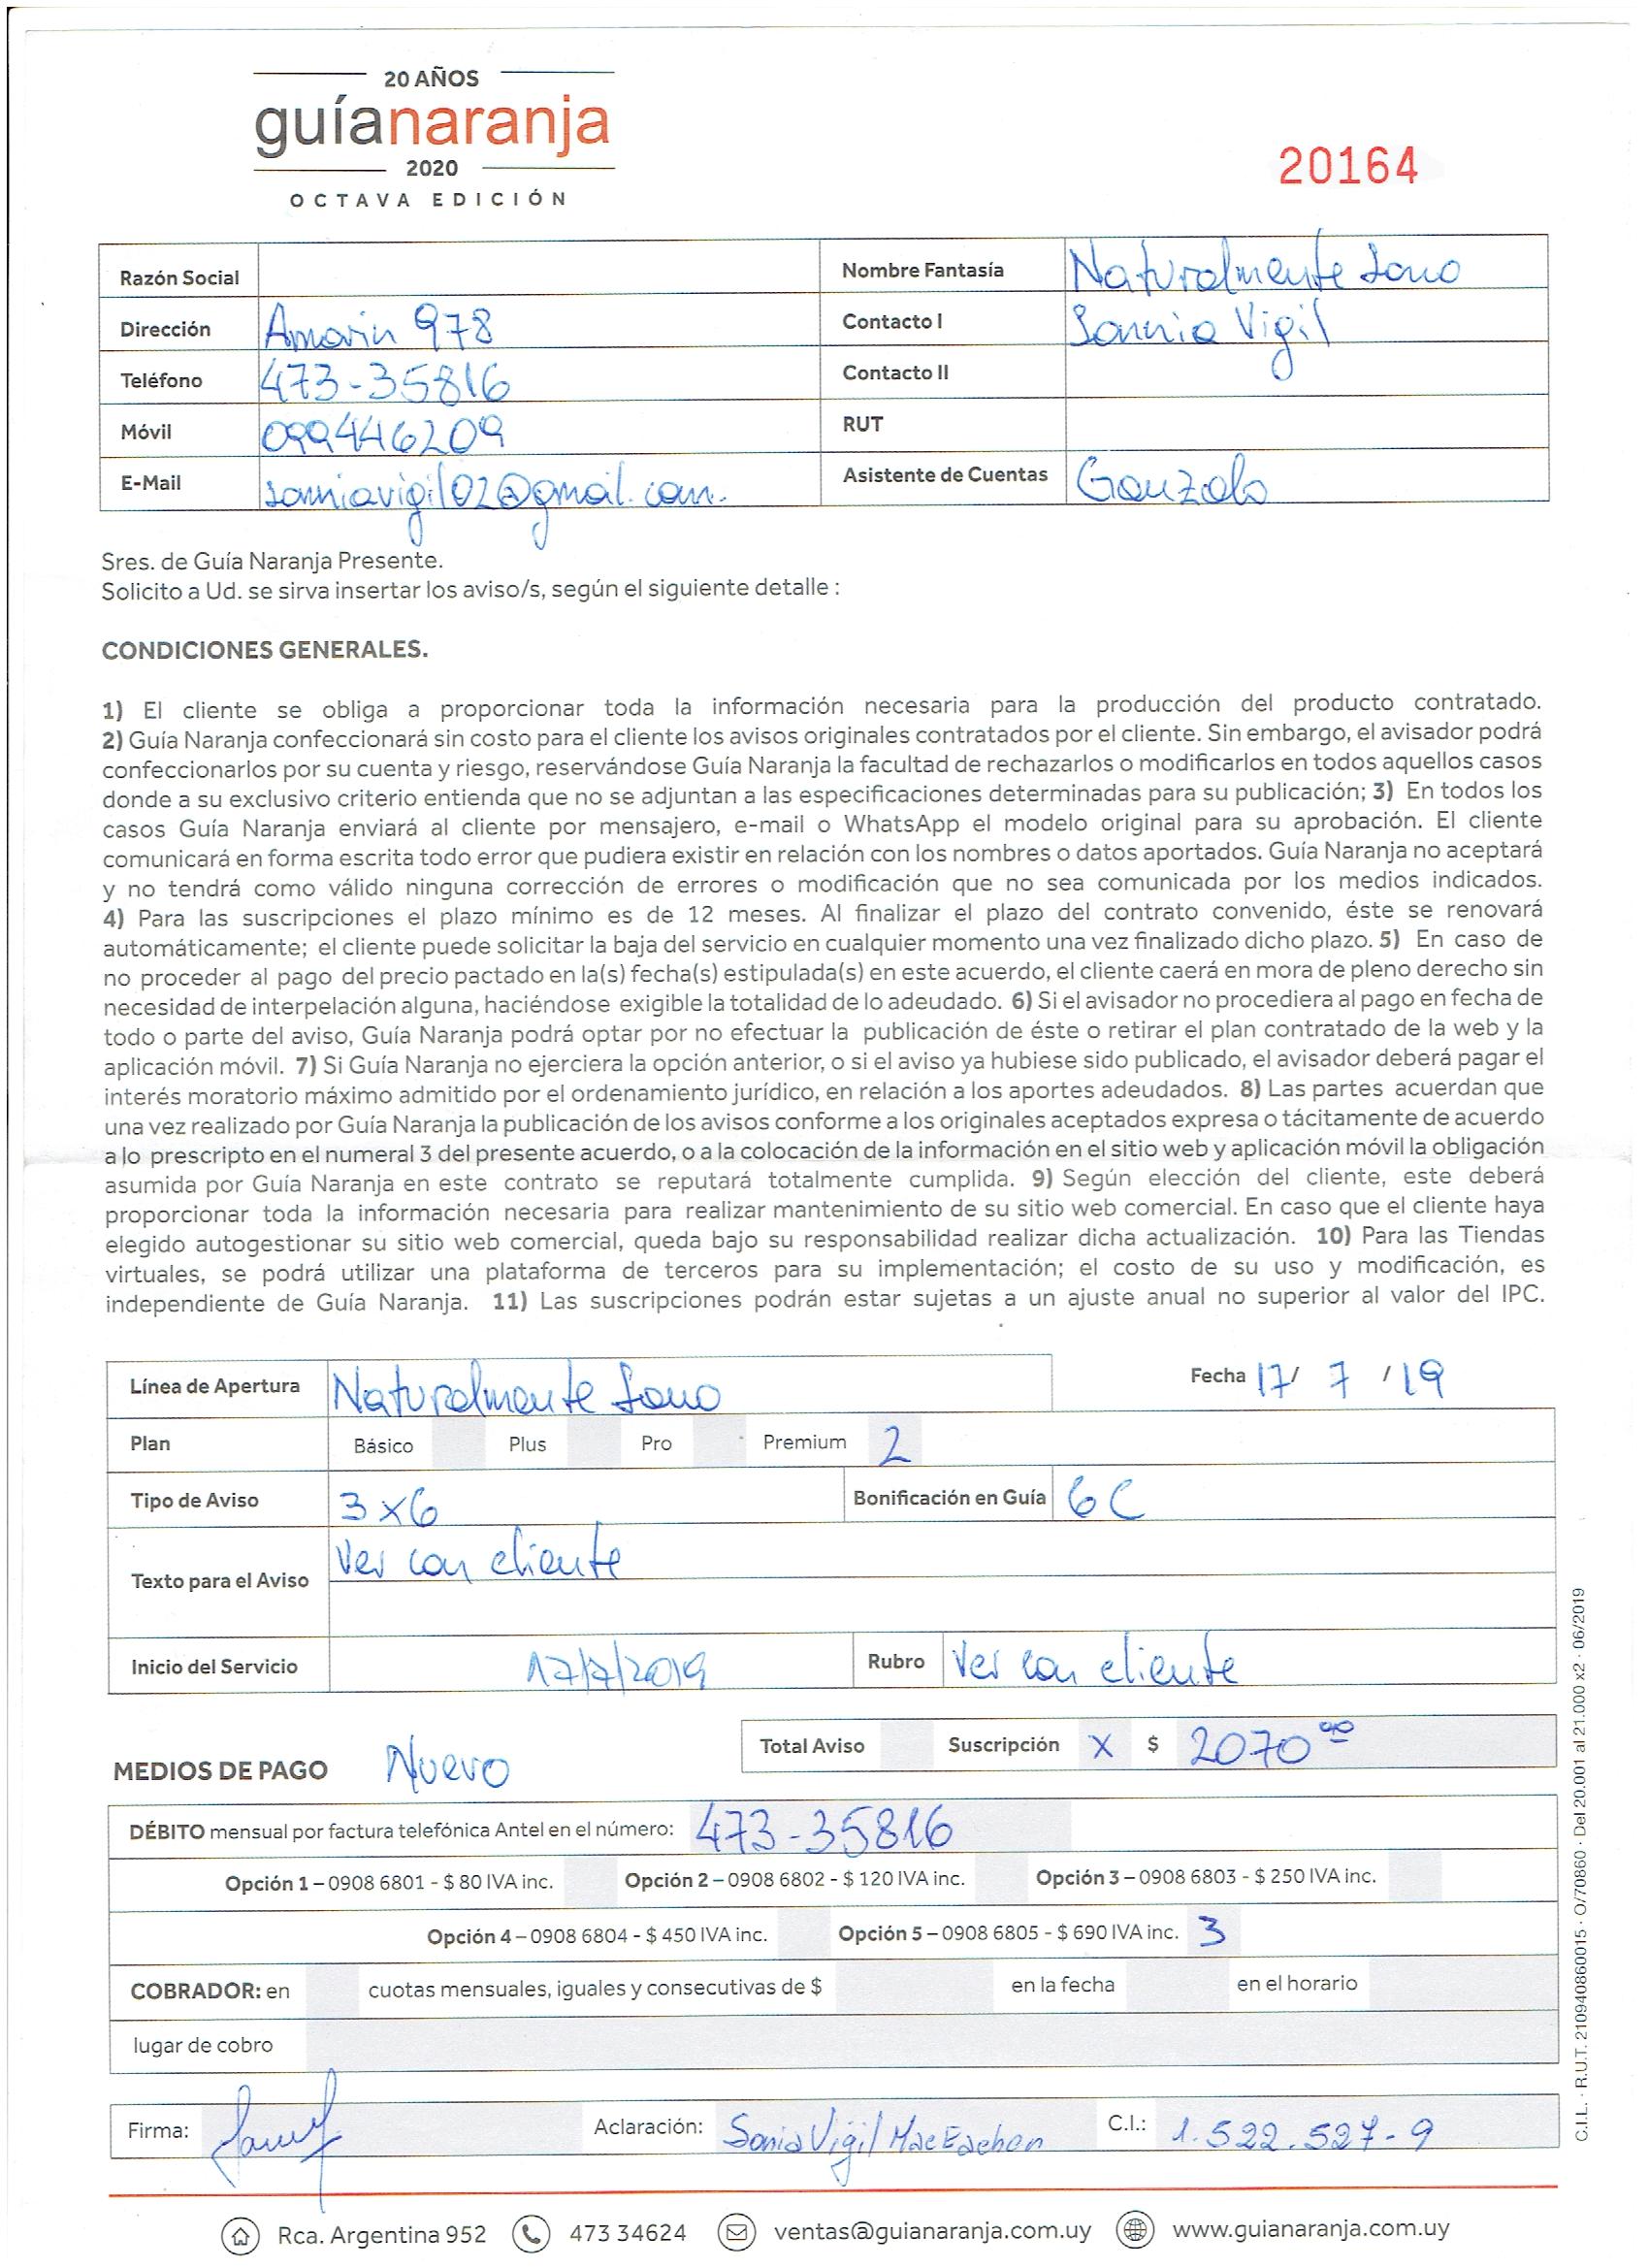 20 AÑOS
guíanaranja
2020
OCTAVA EDICIÓN
20164
Razón Social
Nombre Fantasía Naturalmente Sano
Dirección Amorin 978
Contacto I Sonnia Vigil
Teléfono 473-35816
Contacto II
Móvil 099446209
RUT
E-Mail sonniavigil02@gmail.com.
Asistente de Cuentas Gonzalo
Sres. de Guía Naranja Presente.
Solicito a Ud. se sirva insertar los aviso/s, según el siguiente detalle :
CONDICIONES GENERALES.
1) El cliente se obliga a proporcionar toda la información necesaria para la producción del producto contratado.
2) Guía Naranja confeccionará sin costo para el cliente los avisos originales contratados por el cliente. Sin embargo, el avisador podrá
confeccionarlos por su cuenta y riesgo, reservándose Guía Naranja la facultad de rechazarlos o modificarlos en todos aquellos casos
donde a su exclusivo criterio entienda que no se adjuntan a las especificaciones determinadas para su publicación; 3) En todos los
casos Guía Naranja enviará al cliente por mensajero, e-mail o WhatsApp el modelo original para su aprobación. El cliente
comunicará en forma escrita todo error que pudiera existir en relación con los nombres o datos aportados. Guía Naranja no aceptará
y no tendrá como válido ninguna corrección de errores o modificación que no sea comunicada por los medios indicados.
4) Para las suscripciones el plazo mínimo es de 12 meses. Al finalizar el plazo del contrato convenido, éste se renovará
automáticamente; el cliente puede solicitar la baja del servicio en cualquier momento una vez finalizado dicho plazo. 5) En caso de
no proceder al pago del precio pactado en la(s) fecha(s) estipulada(s) en este acuerdo, el cliente caerá en mora de pleno derecho sin
necesidad de interpelación alguna, haciéndose exigible la totalidad de lo adeudado. 6) Si el avisador no procediera al pago en fecha de
todo o parte del aviso, Guía Naranja podrá optar por no efectuar la publicación de éste o retirar el plan contratado de la web y la
aplicación móvil. 7) Si Guía Naranja no ejerciera la opción anterior, o si el aviso ya hubiese sido publicado, el avisador deberá pagar el
interés moratorio máximo admitido por el ordenamiento jurídico, en relación a los aportes adeudados. 8) Las partes acuerdan que
una vez realizado por Guía Naranja la publicación de los avisos conforme a los originales aceptados expresa o tácitamente de acuerdo
a lo prescripto en el numeral 3 del presente acuerdo, o a la colocación de la información en el sitio web y aplicación móvil la obligación
asumida por Guía Naranja en este contrato se reputará totalmente cumplida. 9) Según elección del cliente, este deberá
proporcionar toda la información necesaria para realizar mantenimiento de su sitio web comercial. En caso que el cliente haya
elegido autogestionar su sitio web comercial, queda bajo su responsabilidad realizar dicha actualización. 10) Para las Tiendas
virtuales, se podrá utilizar una plataforma de terceros para su implementación; el costo de su uso y modificación, es
independiente de Guía Naranja. 11) Las suscripciones podrán estar sujetas a un ajuste anual no superior al valor del IPC.
Línea de Apertura Naturalmente Sano
Fecha 17/ 7 /19
Plan Básico Plus Pro Premium 2
Tipo de Aviso 3x6 Bonificación en Guía 6C
Texto para el Aviso Ver con cliente
Inicio del Servicio 17/7/2019 Rubro Ver con cliente
Total Aviso Suscripción X $ 2070 00
MEDIOS DE PAGO Nuevo
DÉBITO mensual por factura telefónica Antel en el número: 473-35816
Opción 1 – 0908 6801 - $ 80 IVA inc. Opción 2 – 0908 6802 - $ 120 IVA inc. Opción 3 – 0908 6803 - $ 250 IVA inc.
Opción 4 – 0908 6804 - $ 450 IVA inc. Opción 5 – 0908 6805 - $ 690 IVA inc. 3
COBRADOR: en cuotas mensuales, iguales y consecutivas de $ en la fecha en el horario
lugar de cobro
Firma: Aclaración: Sonia Vigil Mac Eachen C.I.: 1.522.527-9
C.I.L. · R.U.T. 210940860015 · O/70860 · Del 20.001 al 21.000 x2 · 06/2019
Rca. Argentina 952 473 34624 ventas@guianaranja.com.uy www.guianaranja.com.uy